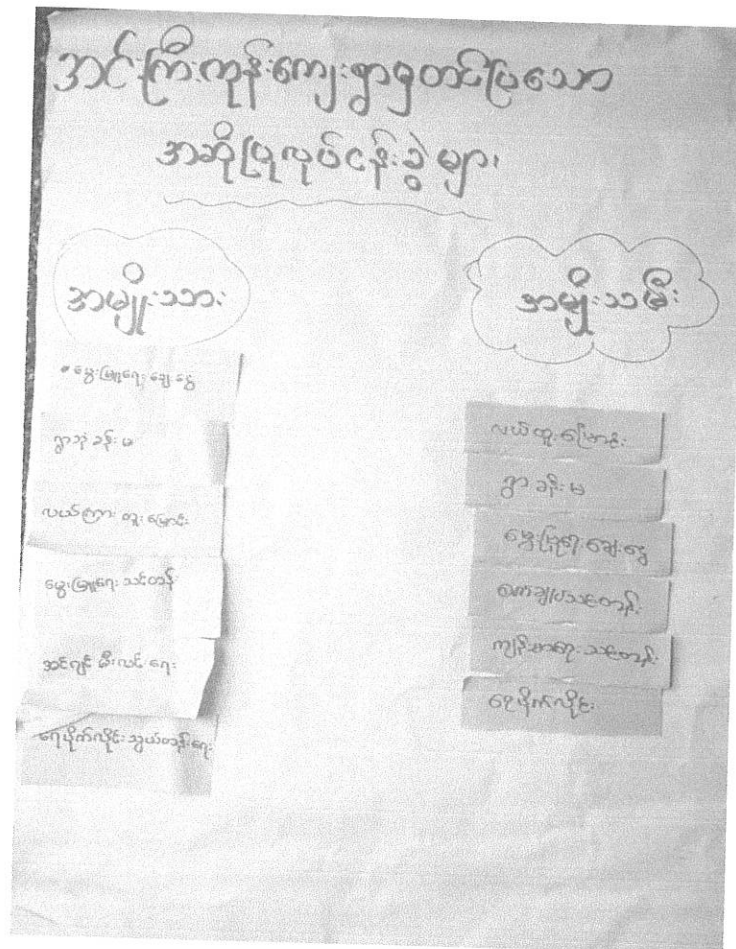 အင်းကြီးကုန်းကျေးရွာမှတင်ပြသော
အဆိုပြုလုပ်ငန်းခွဲများ
အမျိုးသား
မွေးမြူရေးချေးငွေ
ရွာဘုံခန်းမ
လယ်ကြားတူးမြောင်း
မွေးမြူရေးသင်တန်
အင်ဂျင်မီးလင်းရေး
ရေပိုက်လိုင်းသွယ်တန်းရေး
အမျိုးသမီး
လယ်ထူးမြောင်း
ရွာခန်းမ
မွေးမြူရေးချေးငွေ
စက်ချုပ်သင်တန်း
ကျန်းမာရေးသင်တန်း
ရေပိုက်လိုင်း